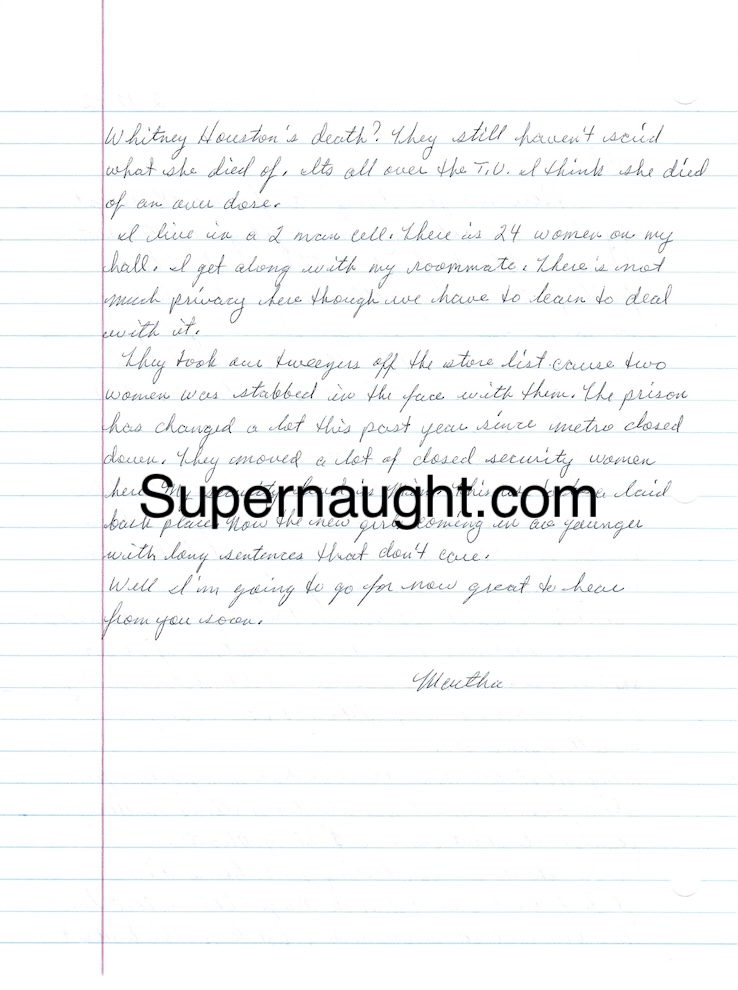 Whitney Houston's death? They still haven't said
what she died of. Its all over the T.V. I think she died
of an over dose.
I live in a 2 man cell. There is 24 women on my
hall. I get along with my roommate. There's not
much privacy here though we have to learn to deal
with it.
They took our tweezers off the store list cause two
women was stabbed in the face with them. The prison
has changed a lot this past year since metro closed
down. They moved a lot of closed security women
here. My security is This laid
Supernaught.com
back place Now the new girls coming in are younger
with long sentences that don't care.
Well I'm going to go for now great to hear
from you soon.
Martha